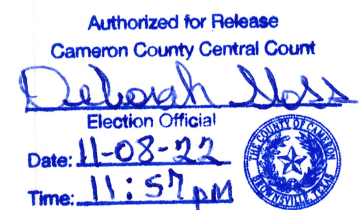 Authorized for Release
Cameron County Central Count
Deborah Moss
Election Official
Date: 11-08-22
Time: 11:57 pM
THE COUNTY OF CAMERON
BROWNSVILLE, TEXAS